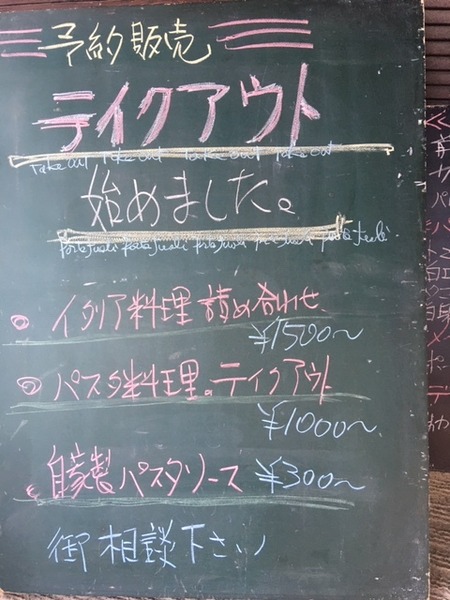 予約販売
テイクアウト
Take out Take out Take out Take out
始めました。
イタリア料理 詰め合わせ
¥1500〜
パスタ料理。テイクアウト
¥1000〜
自家製パスタソース ¥300〜
御相談下さい